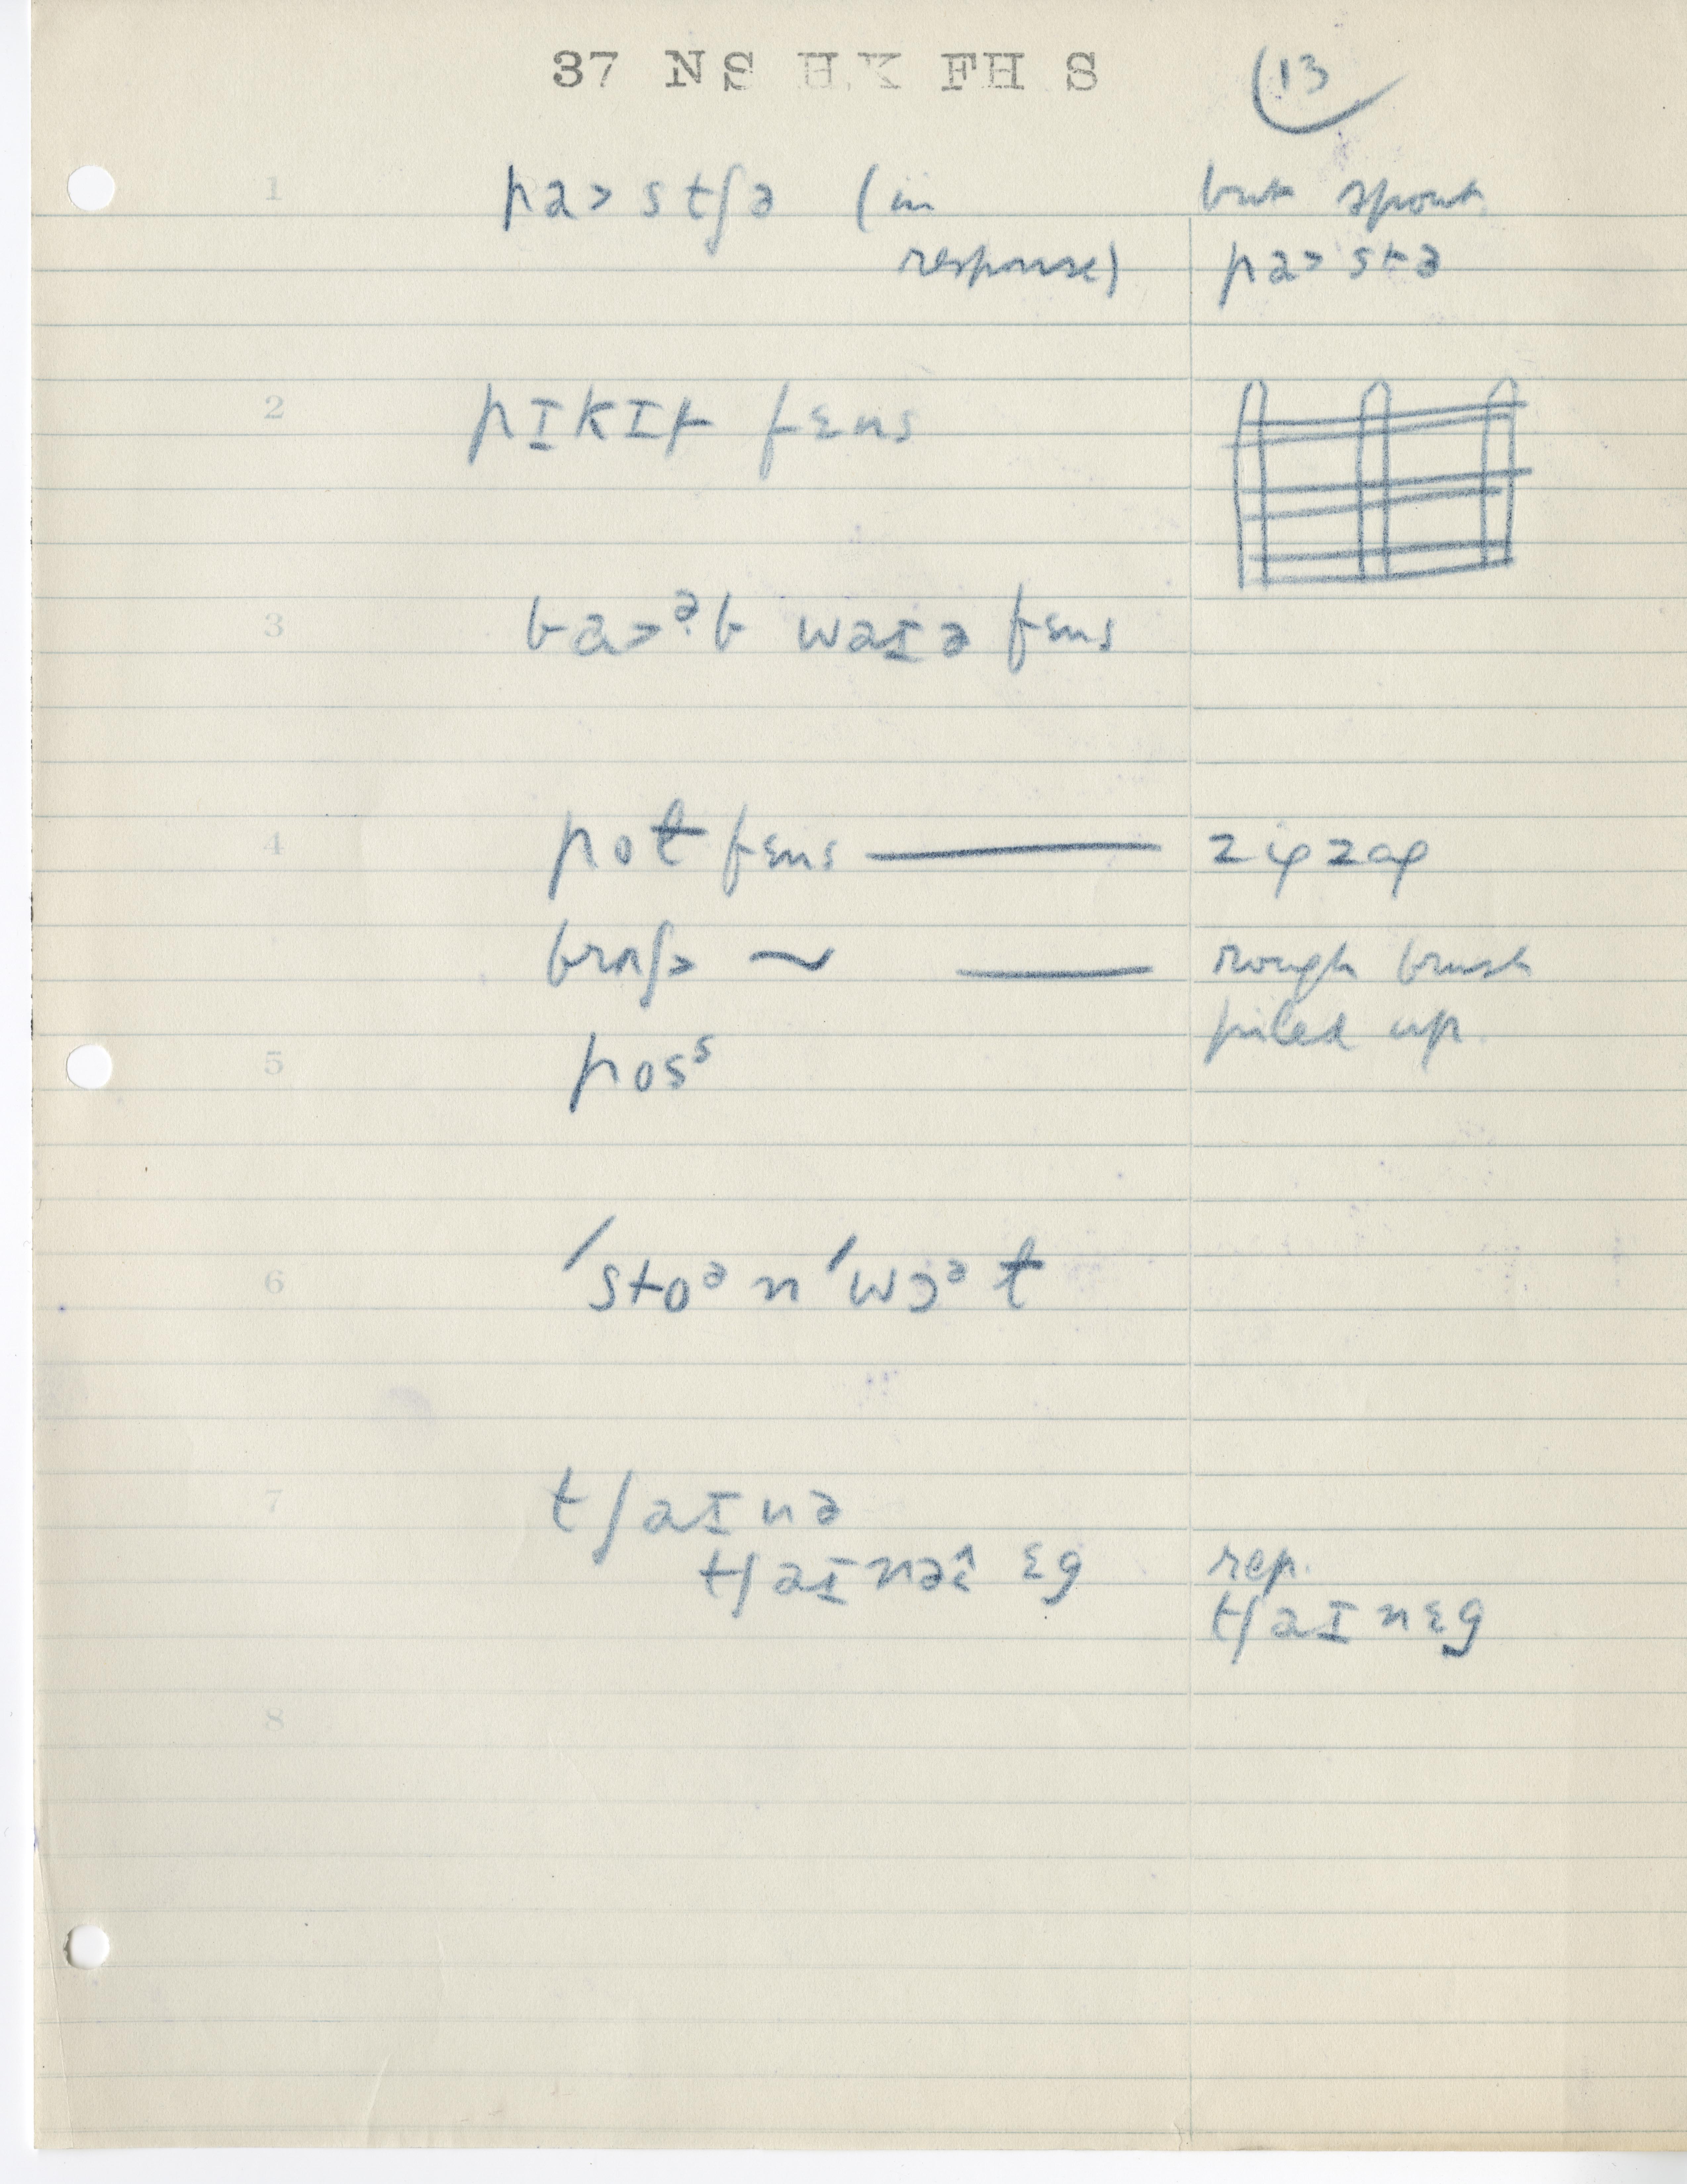 37 NS HK FH S 13
1 pa> stʃə (in but spont.
response) pa> stə
2 pɪkɪt fɛns
3 ba>ᵊb waɪə fɛns
4 pot fɛns — zigzag
brʌʃ> ~ — rough brush
piled up.
5 posˢ
6 ˈstoᵊnˈwɔᵊt
7 tʃaɪnə
tʃaɪnə ɛg rep.
tʃaɪnɛg
8